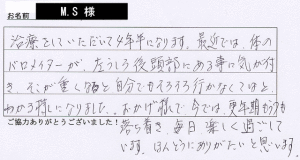 お名前 M.S 様
治療をしていただいて4年半になります。最近では、体の
バロメイターが、左うしろ後頭部にある事に気が付
き、そこが重くなると自分でもそろそろ行かなくてはと
わかる様になりました。おかげ様で今では、更年期もうつも
ご協力ありがとうございました!
落ち着き、毎日楽しく過ごして
います。ほんとうにありがたいと思います。